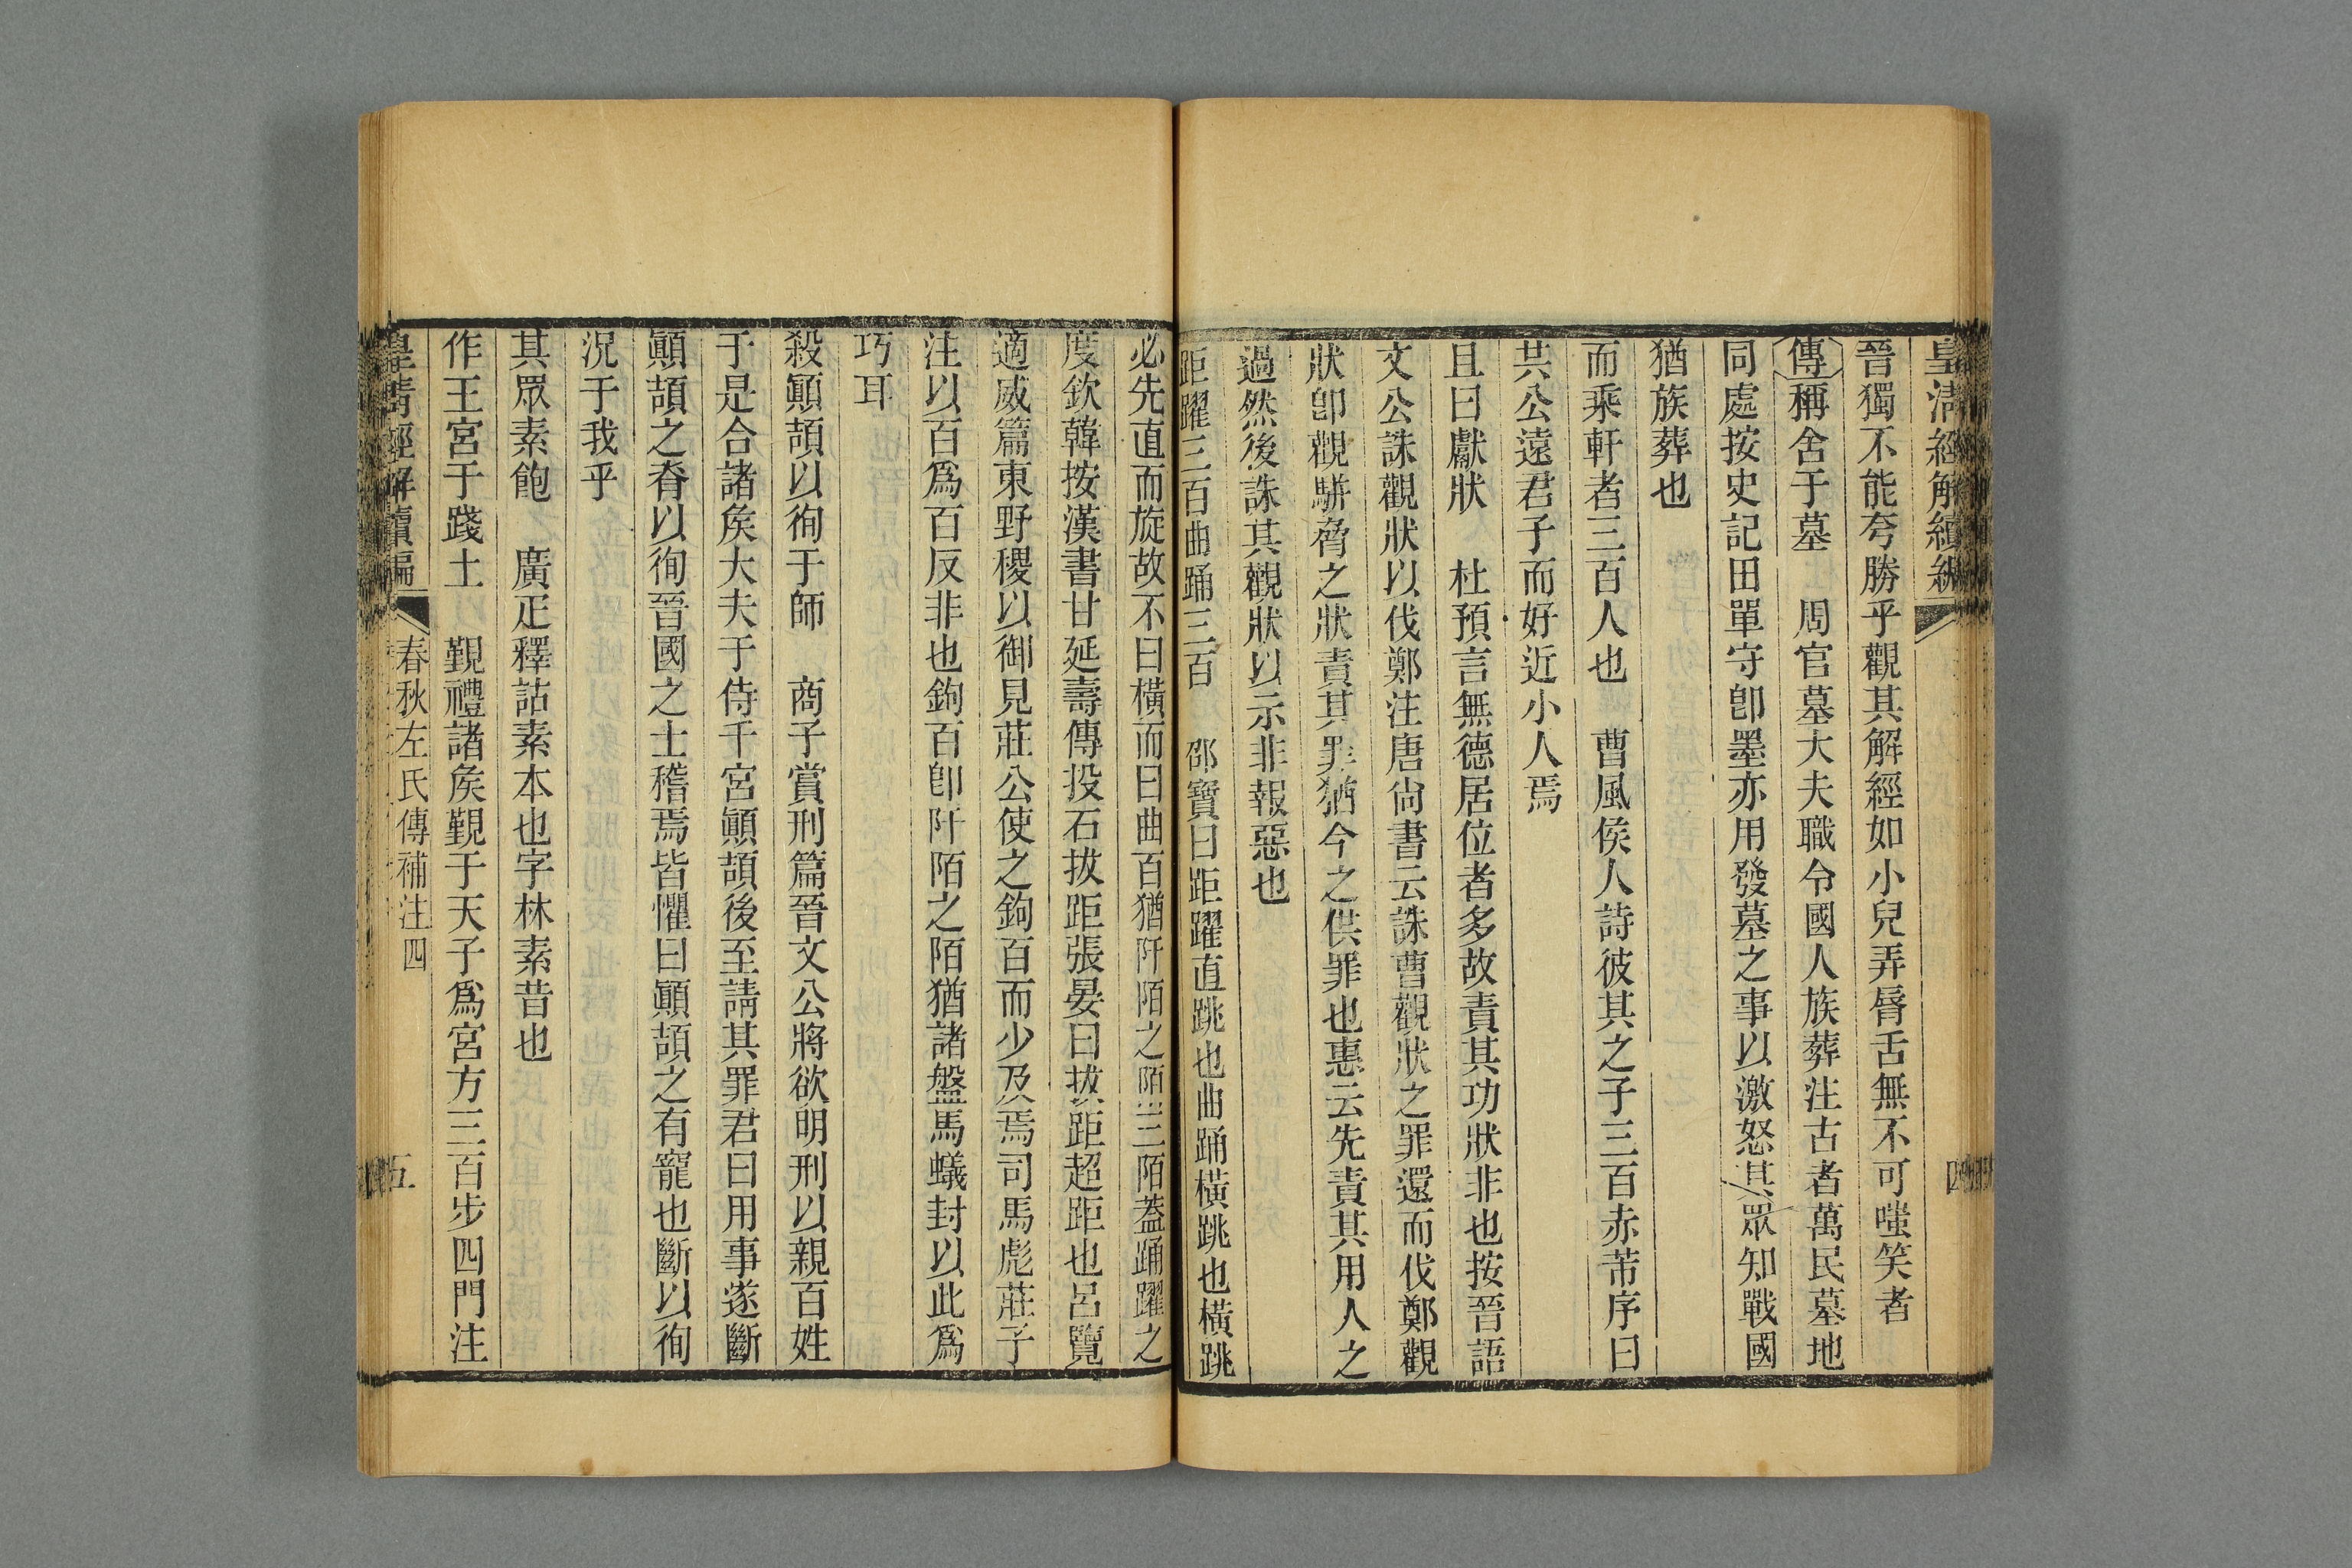 皇清經解續編
四
晉獨不能夸勝乎觀其解經如小兒弄脣舌無不可嗤笑者
傳稱舍于墓　周官墓大夫職令國人族葬注古者萬民墓地
同處按史記田單守卽墨亦用發墓之事以激怒其眾知戰國
猶族葬也
而乘軒者三百人也　曹風侯人詩彼其之子三百赤芾序曰
共公遠君子而好近小人焉
且曰獻狀　杜預言無德居位者多故責其功狀非也按晉語
文公誅觀狀以伐鄭注唐尙書云誅曹觀狀之罪還而伐鄭觀
狀卽觀駢脅之狀責其罪猶今之供罪也惠云先責其用人之
過然後誅其觀狀以示非報惡也
距躍三百曲踊三百　邵寶曰距躍直跳也曲踊橫跳也橫跳
必先直而旋故不曰橫而曰曲百猶阡陌之陌三陌蓋踊躍之
度欽韓按漢書甘延壽傳投石拔距張晏曰拔距超距也呂覽
適威篇東野稷以御見莊公使之鉤百而少及焉司馬彪莊子
注以百爲百反非也鉤百卽阡陌之陌猶諸盤馬蟻封以此爲
巧耳
殺顚頡以徇于師　商子賞刑篇晉文公將欲明刑以親百姓
于是合諸矦大夫于侍千宮顚頡後至請其罪君曰用事遂斷
顚頡之脊以徇晉國之士稽焉皆懼曰顚頡之有寵也斷以徇
況于我乎
其眾素飽　廣疋釋詁素本也字林素昔也
作王宮于踐土　覲禮諸矦覲于天子爲宮方三百步四門注
皇清經解續編
春秋左氏傳補注四
五